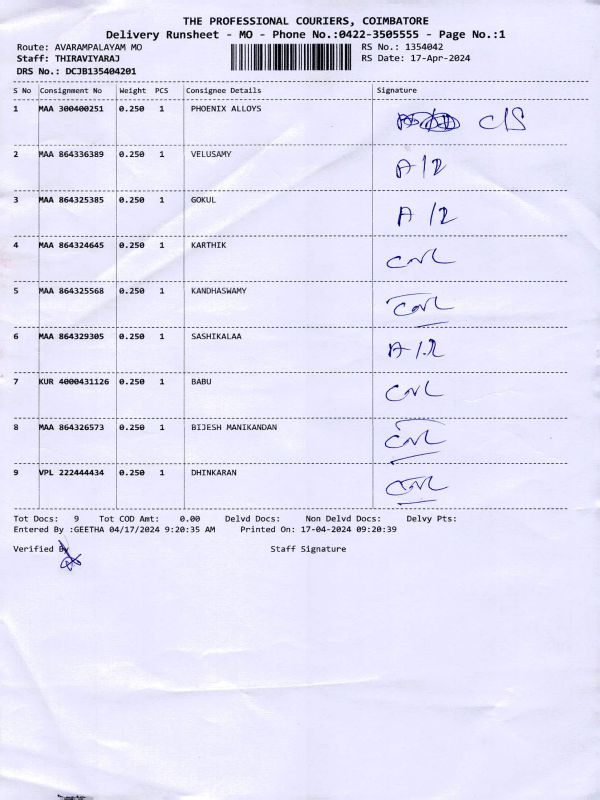 THE PROFESSIONAL COURIERS, COIMBATORE
Delivery Runsheet - MO - Phone No.:0422-3505555 - Page No.:1
Route: AVARAMPALAYAM MO RS No.: 1354042
Staff: THIRAVIYARAJ RS Date: 17-Apr-2024
DRS No.: DCJB135404201
S No Consignment No Weight PCS Consignee Details Signature
1 MAA 300400251 0.250 1 PHOENIX ALLOYS C/S
2 MAA 864336389 0.250 1 VELUSAMY A/2
3 MAA 864325385 0.250 1 GOKUL A/2
4 MAA 864324645 0.250 1 KARTHIK
5 MAA 864325568 0.250 1 KANDHASWAMY
6 MAA 864329305 0.250 1 SASHIKALAA
7 KUR 4000431126 0.250 1 BABU
8 MAA 864326573 0.250 1 BIJESH MANIKANDAN
9 VPL 222444434 0.250 1 DHINKARAN
Tot Docs: 9 Tot COD Amt: 0.00 Delvd Docs: Non Delvd Docs: Delvy Pts:
Entered By :GEETHA 04/17/2024 9:20:35 AM Printed On: 17-04-2024 09:20:39
Verified By Staff Signature